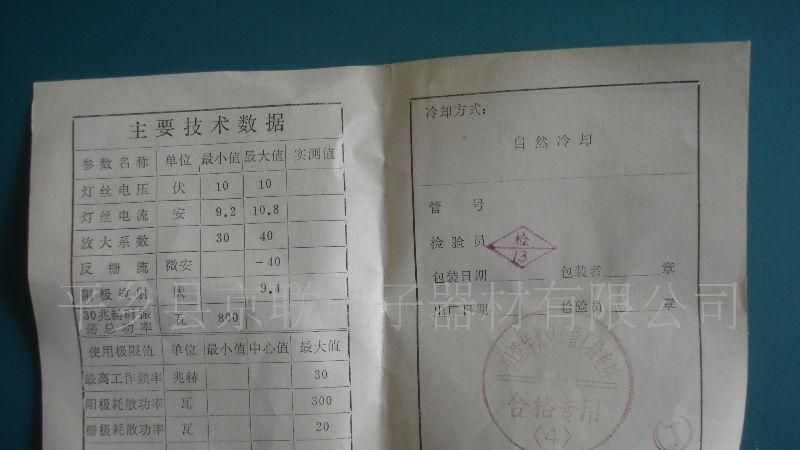 主要技术数据
参数名称 单位 最小值 最大值 实测值
灯丝电压 伏 10 10
灯丝电流 安 9.2 10.8
放大系数 30 40
反栅流 微安 -40
阳极放射 伏 9.4
30兆赫时振荡总功率 瓦 800
使用极限值 单位 最小值 中心值 最大值
最高工作频率 兆赫 30
阳极耗散功率 瓦 300
栅极耗散功率 瓦 20
冷却方式:
自然冷却
管号
检验员
检
13
包装日期 包装者 章
出厂日期 检验员 章
合格专用
〈4〉
平乡县京联电子器材有限公司